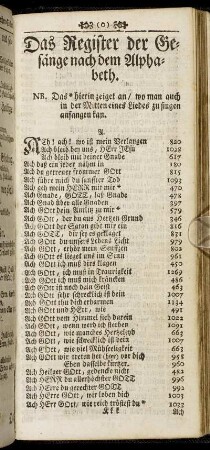 (0)
Das Register der Ge-
sänge nach dem Alpha-
beth.
NB. Das * hierin zeiget an / wo man auch
in der Mitten eines Liedes zu singen
anfangen kan.
A.
ACh! ach! wo ist mein Verlangen 820
Ach bleib bey uns, HErr JEsu 1038
Ach bleib mit deiner Gnade 617
Ach daß ein jeder nähm in 180
Ach du getreuer frommer GOtt 815
Ach führe mich du sanffter Tod 1091
Ach geh mein HERR mit mir * 470
Ach Gnade, GOTT, laß Gnade 478
Ach Gnad über alle Gnaden 397
Ach GOtt dein Antlitz zu mir * 579
Ach GOtt, der du aus Hertzen Grund 346
Ach GOtt der Satan gibt mir ein
Ach GOTT, dir sey es geklagt 831
Ach GOtt du unsers Lebens Liecht 979
Ach GOtt, erhör mein Seuffzen 829
Ach GOtt es lieget uns im Sinn 961
Ach GOtt ich muß ders klagen 450
Ach GOtt, ich muß in Traurigkeit 1269
Ach GOtt ich muß mich kräncken 436
Ach GOtt ist noch dein Geist 463
Ach GOtt sehr schrecklich ist dein 1007
Ach GOtt thu dich erbarmen 1134
Ach GOtt und HErr, wie 491
Ach GOtt vom Himmel sieh darein 998
Ach GOtt, wenn werd ich sterben 1091
Ach GOtt, wie manches Hertzeleyd 665
Ach GOtt, wie schrecklich ist dein 1007
Ach GOtt, wie viel Mühseeligkeit 663
Ach GOtt wir treten hier vor dich 955
Eben dasselbe kürtzer. 960
Ach Heiliger GOtt, gedencke nicht 482
Ach HERR du allerhöchster GOTT 996
Ach HErr du gerechter GOTT 992
Ach HErre GOtt, wie haben dich 992
Ach HErr GOtt, wie reich tröstest du * 1023
Kkk Ach